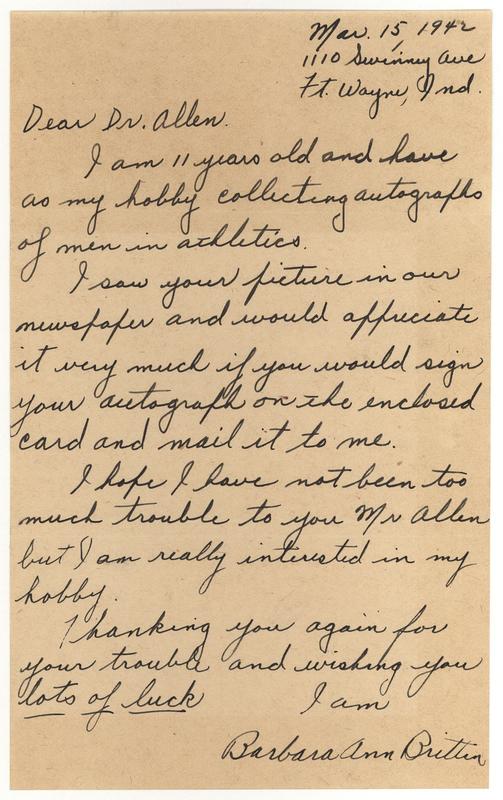 Mar. 15, 1942
1110 Swinney Ave
Ft. Wayne, Ind.
Dear Dr. Allen.
I am 11 years old and have
as my hobby collecting autographs
of men in athletics.
I saw your picture in our
newspaper and would appreciate
it very much if you would sign
your autograph on the enclosed
card and mail it to me.
I hope I have not been too
much trouble to you Mr Allen
but I am really interested in my
hobby.
Thanking you again for
your trouble and wishing you
lots of luck I am
Barbara Ann Brittin